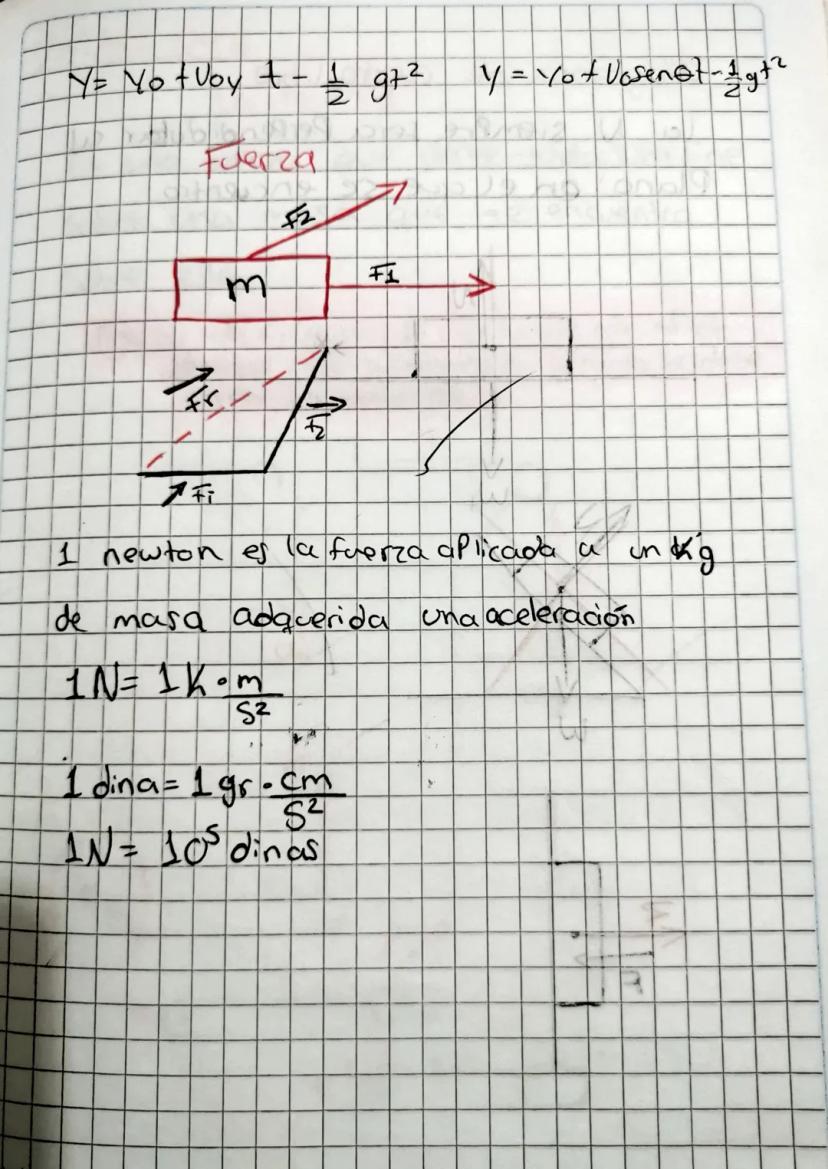 Y = Yo + Voy t - 1/2 gt² y = yo + Vosenθt - 1/2 gt²
Fuerza
F2
m
F1
Fr
F2
F1
1 newton es la fuerza aplicada a un Kg
de masa adquerida una aceleración
1N = 1K · m/s²
1 dina = 1gr · cm/s²
1N = 10⁵ dinas